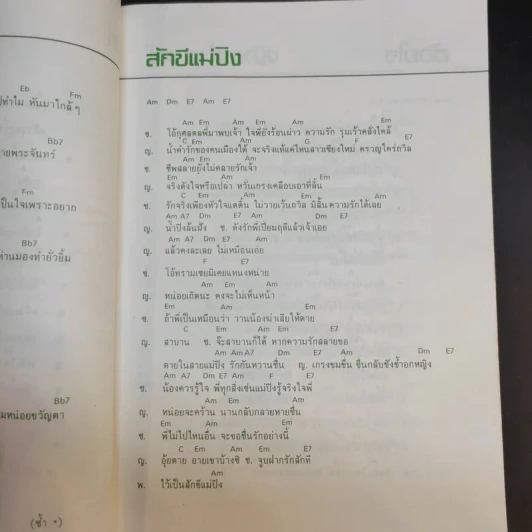 Eb Fm
ปทำไม หันมาใกล้ๆ
Bb7
ายพระจันทร์
Fm
เป็นใจเพราะอยาก
Bb7
ท่านมองทำยั่วยิ้ม
Bb7
มหน่อยขวัญตา
(ซ้ำ *)
สักขีแม่ปิง
Am Dm E7 Am E7
Am Em Am Em Am
ช. โอ้กุศลดลพี่มาพบเจ้า ใจพี่ยังร้อนผ่าว ความรัก รุมเร้าคลั่งไคล้
C Em Am G F E7
ญ. น้ำคำรักของคนเมืองใต้ จะจริงแท้แค่ไหนสาวเชียงใหม่ ครวญใคร่ถวิล
Am Em Am
ช. ชีพสลายยังไม่คลายรักเจ้า
Em Am Em
ญ. จริงดังใจหรือเปล่า หวั่นเกรงเคลือบเอาที่ลิ้น
C Em Am Em
ช. รักจริงเพียงหัวใจแดดิ้น ไม่วายเว้นถวิล มิสิ้นความรักได้เลย
Am A7 Dm E7 Am Dm E7
ญ. น้ำปิงล้นฝั่ง ช. ดังรักพี่เปี่ยมฤดีแล้วเจ้าเอย
Am A7 Dm E7 Am
ญ. แล้วคงละเลย ไม่เหมือนเก่า
F E7
ช. โอ้ทรามเชยมิเคยแหนงหน่าย
Am Em Am
ญ. หน่อยเถิดนะ คงจะไม่เห็นหน้า
Em Am Em
ช. ถ้าพี่เป็นเหมือนว่า วานน้องฆ่าเสียให้ตาย
C Em Am Em E7
ญ. สาบาน ช. จ๊ะสาบานก็ได้ หากความรักสลายขอ
Am Am A7 Dm Am Dm E7
ตายในสายแม่ปิง รักกันหวานชื่น ญ. เกรงขมขื่น ขืนกลับชังช้ำอกหญิง
Am A7 Dm E7 Am F E7
ช. น้องควรรู้ใจ พี่ทุกสิ่งเช่นแม่ปิงรู้จริงใจพี่
Am Em Am
ญ. หน่อยจะคร้าน นานกลับกลายหายชื่น
Em Am Em
ช. พี่ไม่ไปไหนอื่น จะขอชื่นรักอย่างนี้
C Em Am Em E7
ญ. อุ้ยตาย อายเขาบ้างซิ ช. จูบฝากรักสักที
Am
พ. ไว้เป็นสักขีแม่ปิง